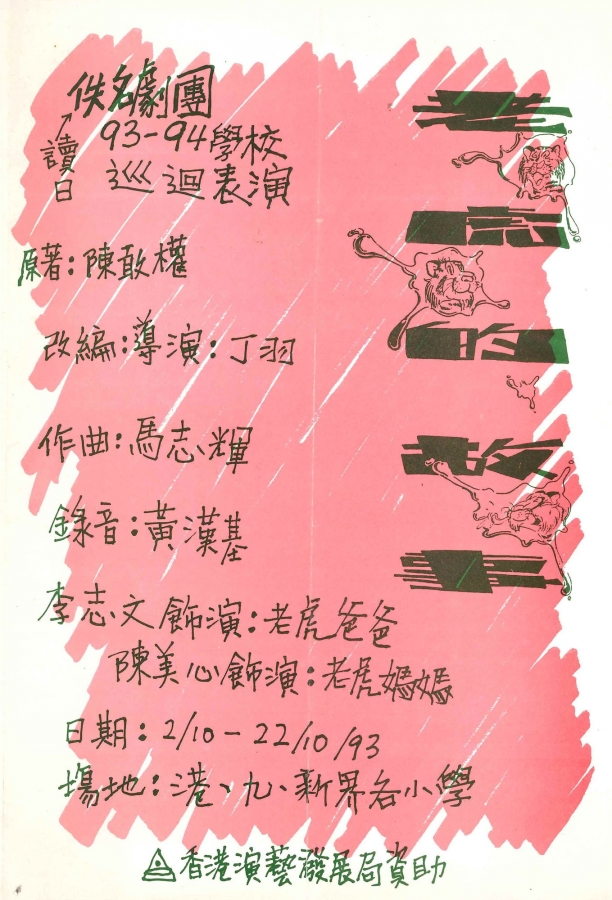 佚名劇團
讀日
93-94學校
巡迴表演
老虎的故事
原著：陳敢權
改編：導演：丁羽
作曲：馬志輝
錄音：黃漢基
李志文飾演：老虎爸爸
陳美心飾演：老虎媽媽
日期：2/10-22/10/93
塲地：港、九、新界各小學
香港演藝發展局資助